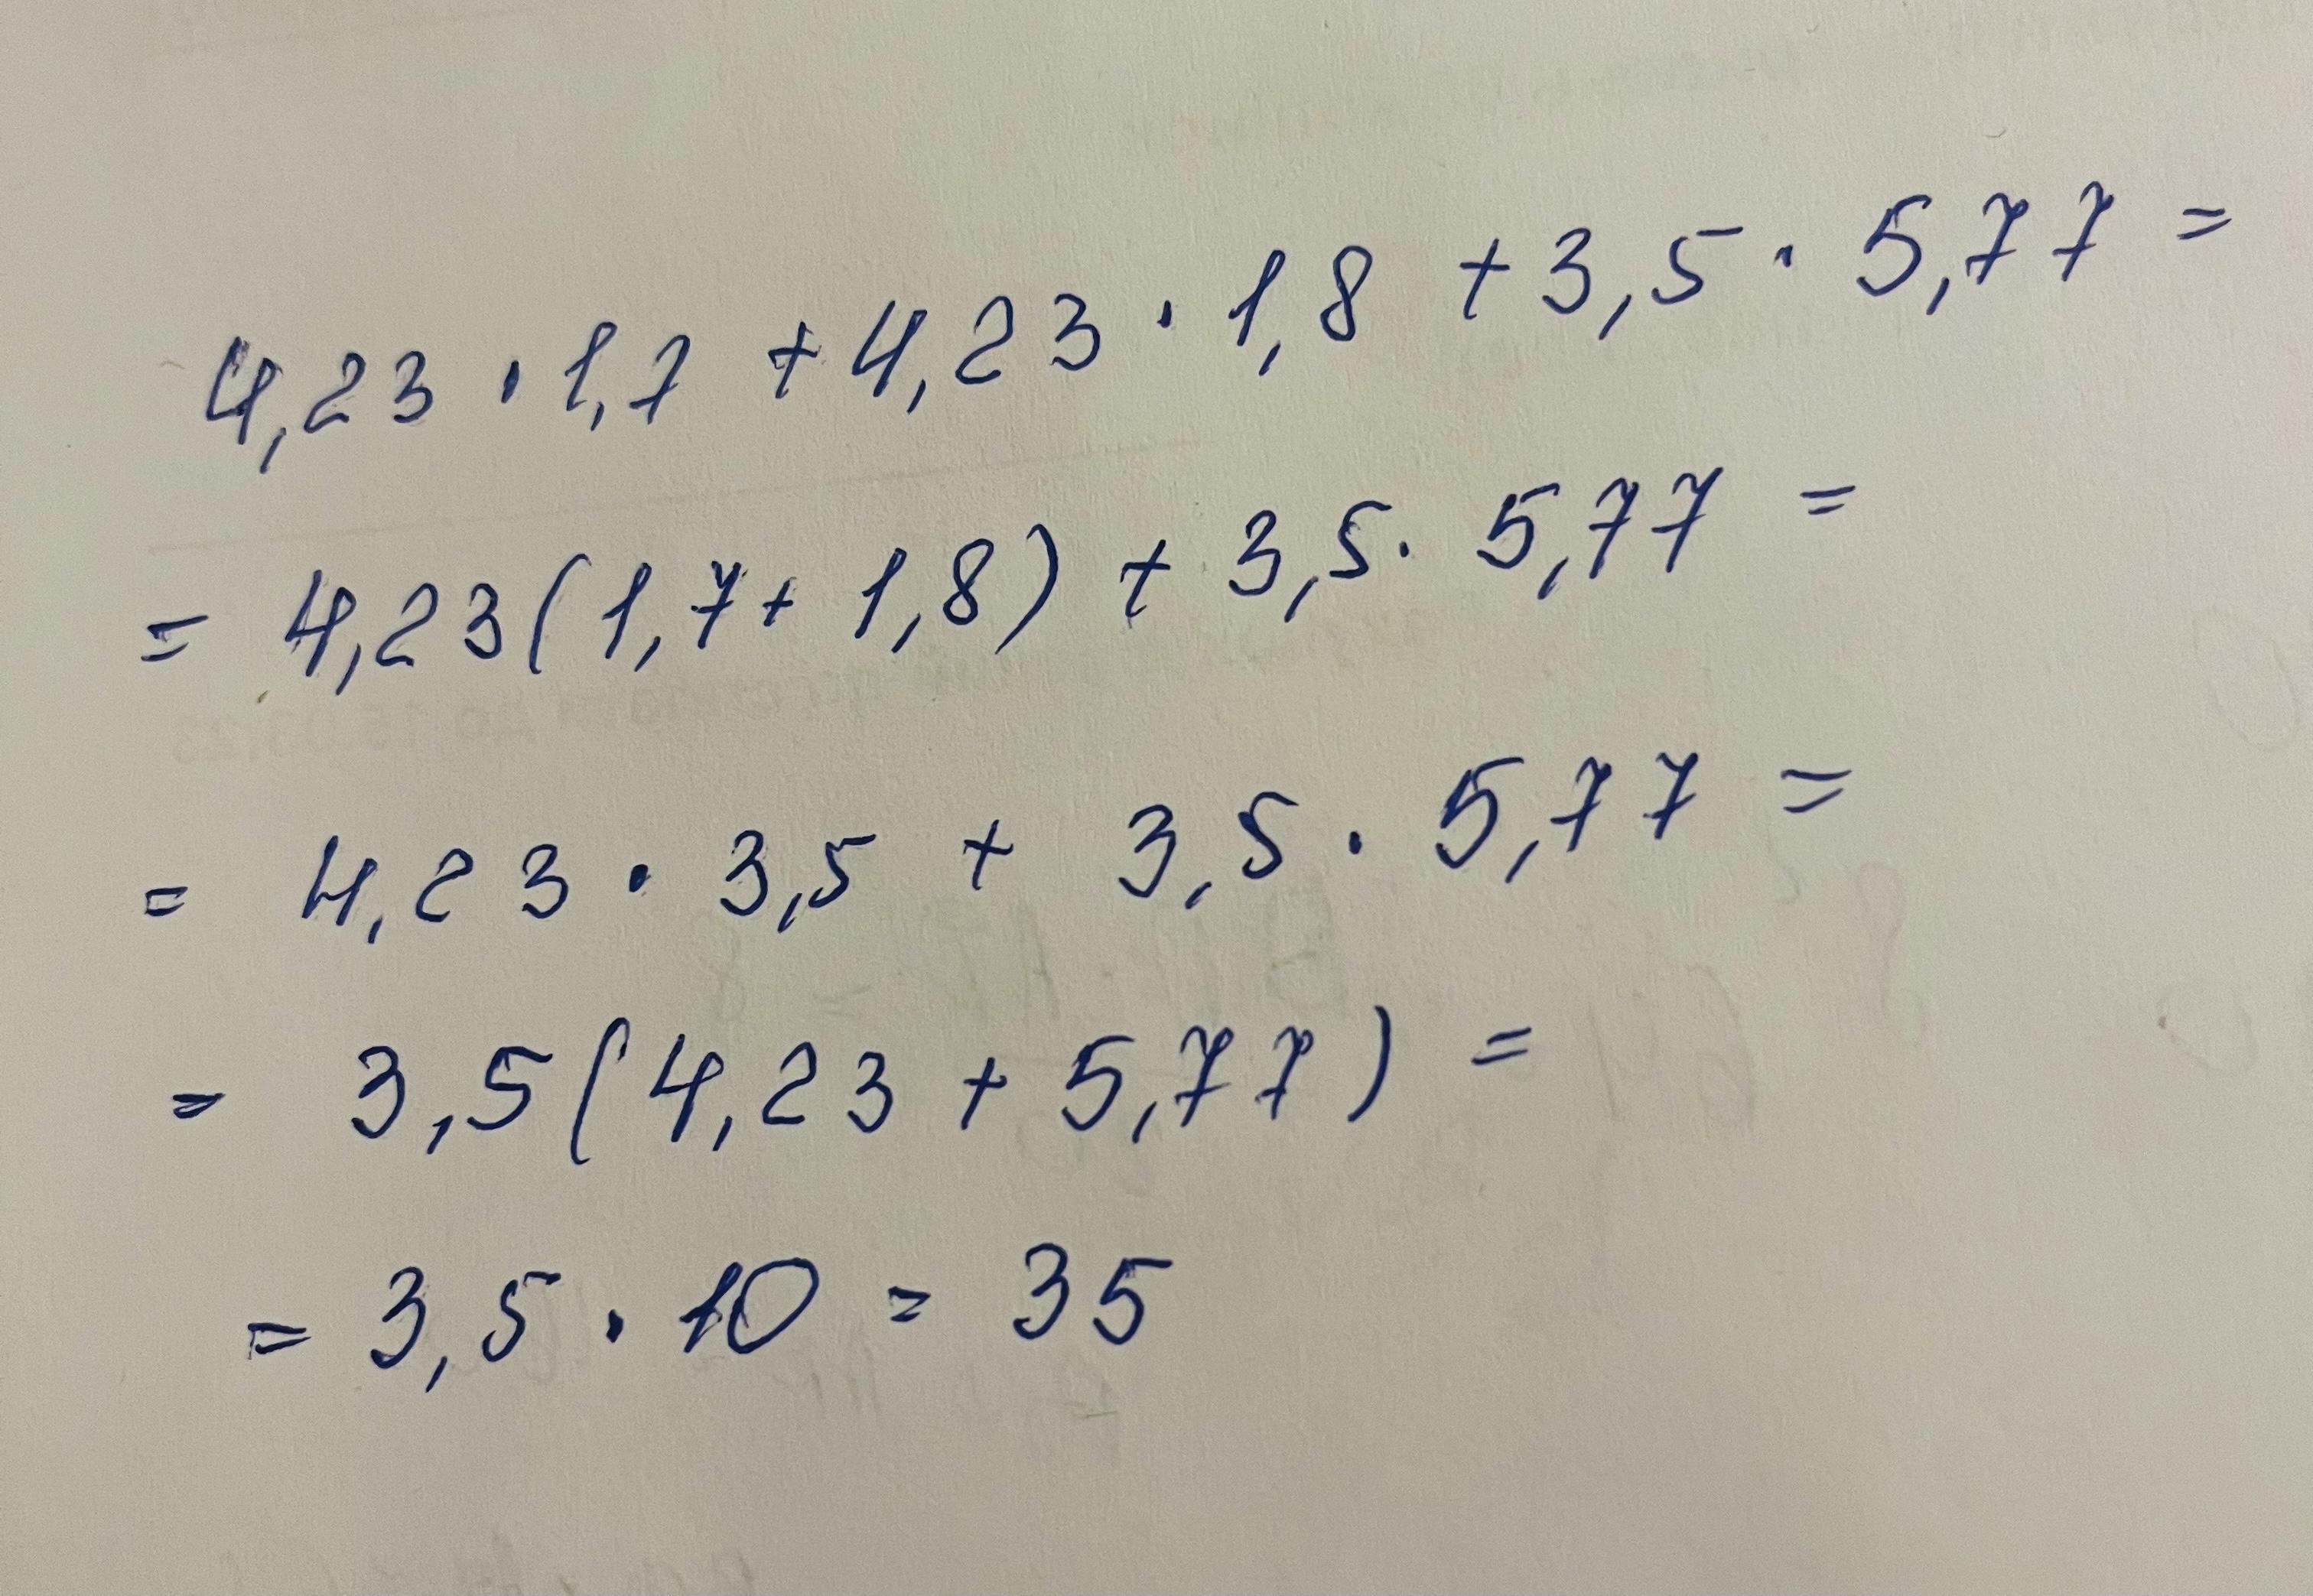 4,23 · 1,7 + 4,23 · 1,8 + 3,5 · 5,77 =
= 4,23(1,7 + 1,8) + 3,5 · 5,77 =
= 4,23 · 3,5 + 3,5 · 5,77 =
= 3,5(4,23 + 5,77) =
= 3,5 · 10 = 35